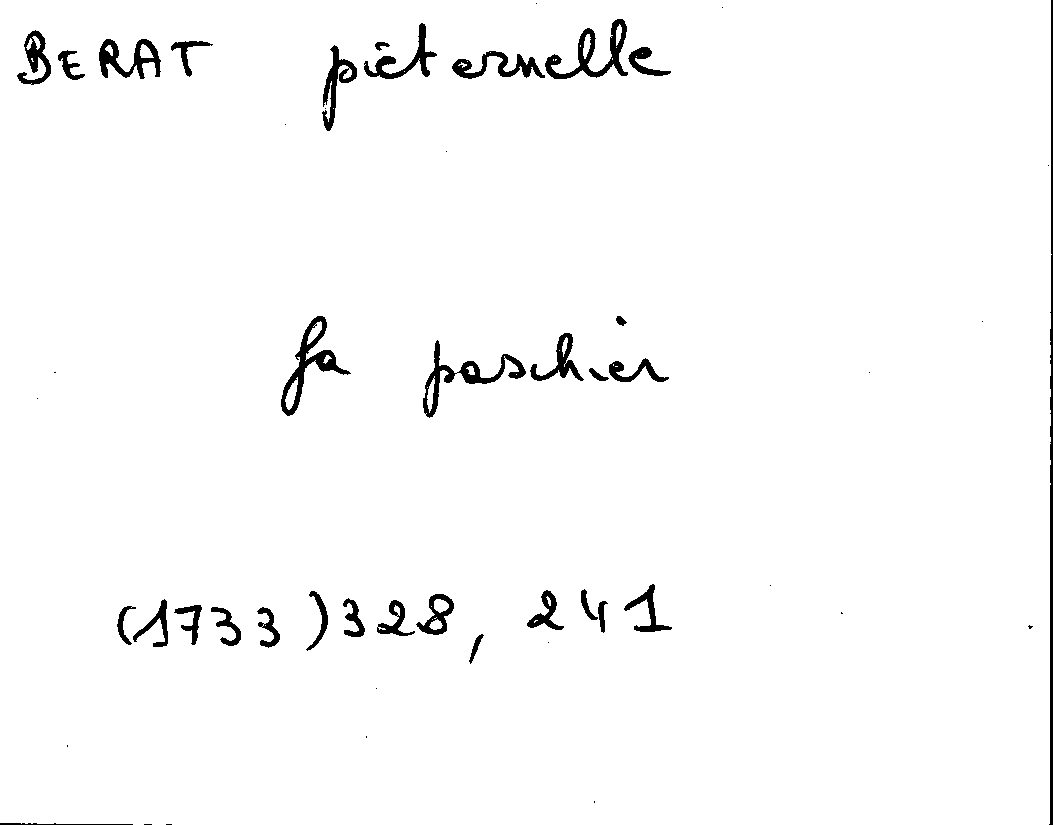 BERAT pieternelle
fa paschier
(1733)328, 241